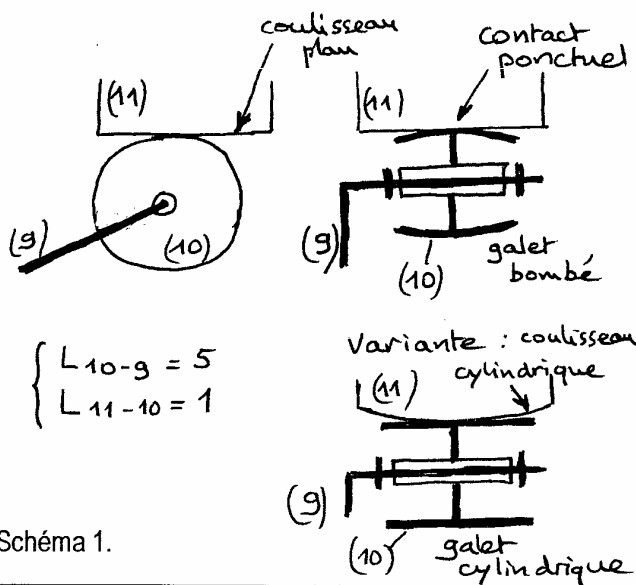 coulisseau
plan
(11)
(9)
(10)
contact
ponctuel
(11)
(9)
(10)
galet
bombé
L10-9 = 5
L11-10 = 1
Variante : coulisseau
cylindrique
(11)
(9)
(10)
galet
cylindrique
Schéma 1.